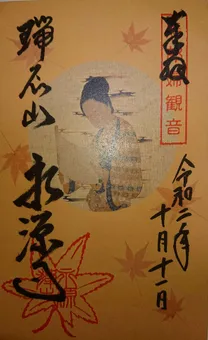 奉拝
婦観音
令和二年
十月十一日
瑞石山
永源寺